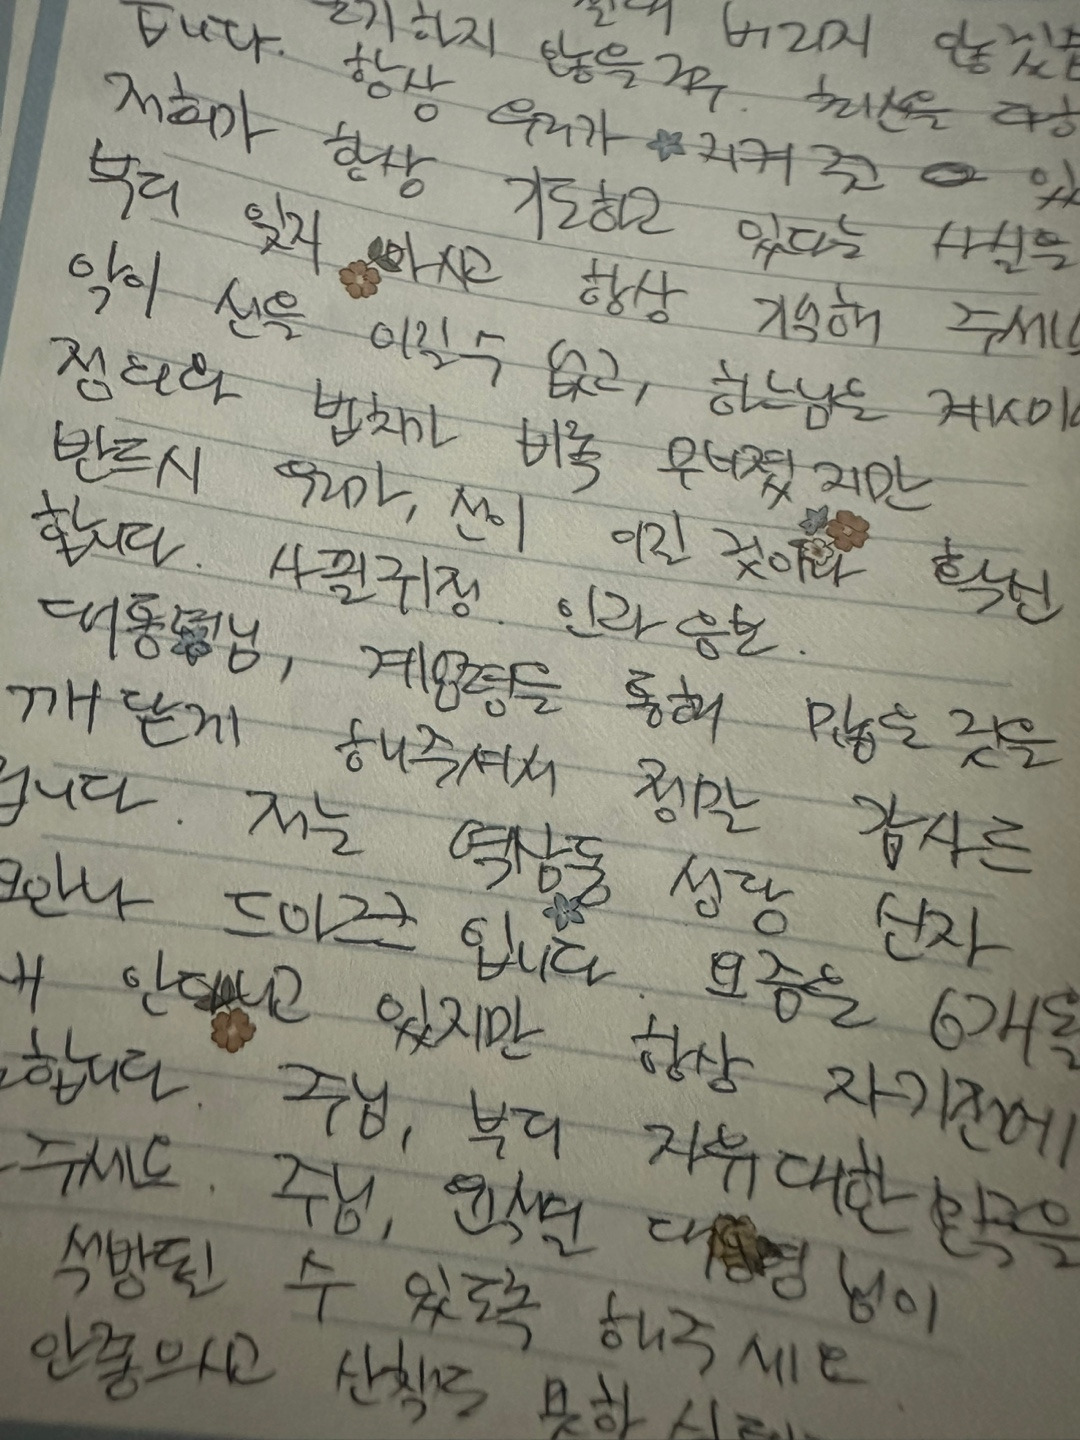 버리지 않겠습
됩니다. 포기하지 않을 것. 최선을 다하
저희가 항상 우리가 지켜 줄 있
항상 기도하고 있다는 사실을
부디 잊지 마시고 항상 기억해 주세요
악이 선을 이길 수 없고, 하느님은
법치가 비록 무너졌지만
반드시 우리가, 선이 이길 것이라 확신
합니다. 사필귀정. 인과응보.
대통령님, 계엄령을 통해 많은 것을
깨닫게 해주셔서 정말 감사드
립니다. 저는 역삼동 성당 신자
요안나 드아크 입니다. 요즘은 6개월
있지만 항상 자기전에
합니다. 주님, 부디 자유대한민국을
주세요. 주님, 윤석열 대통령님이
석방될 수 있도록 해주세요
산책도 못하시